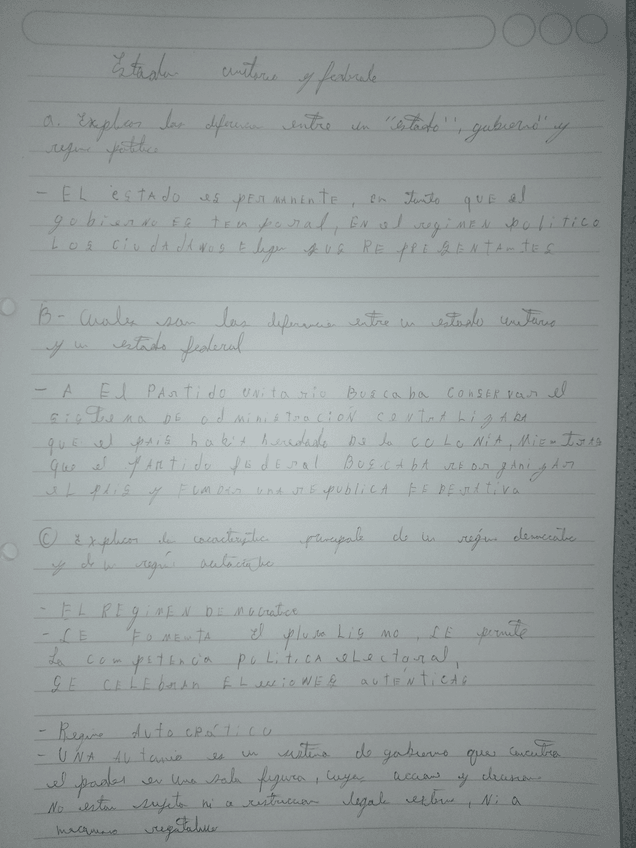 Estados unitario y federale
a. Explicar las diferencia entre un "estado", gobierno" y
regimen politico
- EL ESTADO es PERMANENTE, en tanto QUE el
gobierno ES temporal, EN el regimen politico
LOS CIUDADANOS Eligen SUS REPRESENTANTES
B- Cuales son las diferencia entre un estado unitario
y un estado federal
- A El PARTIDO UNITARIO BUSCABA CONSERVAR el
SISTEMA DE administRACION CENTRALIZADA
que el pais habia heredado DE la COLONIA, MIENTRAS
Que el PARTIDO FEDERAL BUSCABA reorganizar
el PAIS y FUNDAR una REPUBLICA FEDERATIVA
C Explicar la caracteristica principale de un regimen democratico
y de un regimen
- EL REGIMEN DEMocratico
- SE FOMENTA El pluraLISMO, SE permite
La COMPETENCIA POLITICA eLectoral,
SE CELEBRAN ELecciONES AUTENTICAS
- Regimen AUTOCRÁTICO
- UNA es un sistema de gobierno que concentra
el poder en una sola figura, cuyas acciones y decisiones
No estan sujeta ni a restriccion legale externa, Ni a
mecanismo